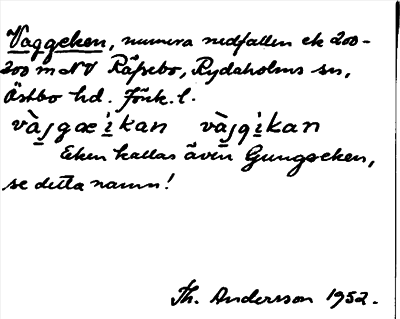 Vaggeken, numera nedfallen ek 200-
200 m NV Råpebo, Rydaholms sn,
Östbo hd. Jönk. l.
Eken kallas även Gungeeken,
se detta namn!
Th. Andersson 1952.